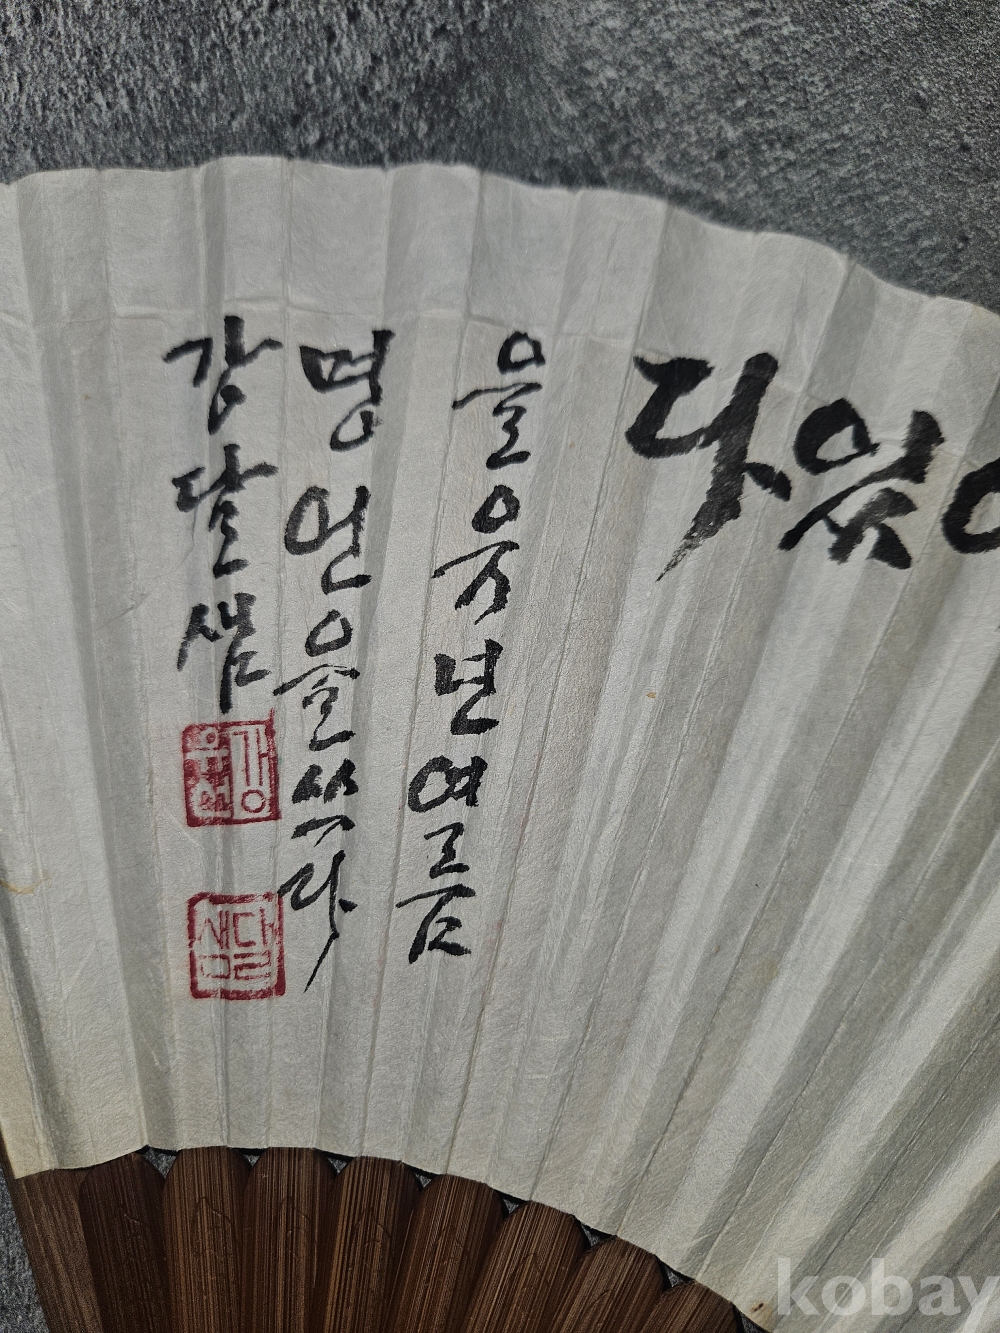 있다
을유년여름
명언을쓰다
강달샘
달샘
kobay